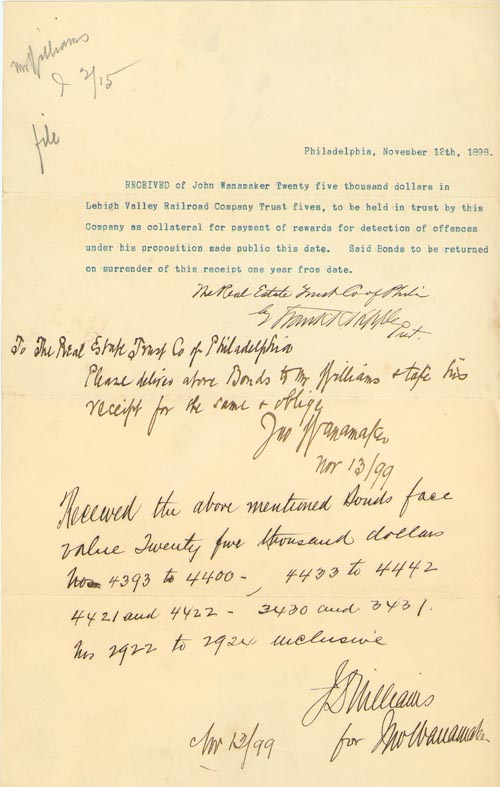 Mr Williams
2/15
file
Philadelphia, November 12th, 1898.
RECEIVED of John Wanamaker Twenty five thousand dollars in
Lehigh Valley Railroad Company Trust fives, to be held in trust by this
Company as collateral for payment of rewards for detection of offences
under his proposition made public this date. Said Bonds to be returned
on surrender of this receipt one year from date.
The Real Estate Trust Co of Phila
by Frank K Hipple
Prest.
To The Real Estate Trust Co of Philadelphia
Please deliver above Bonds to Mr Williams & take his
receipt for the same & oblige
Jno Wanamaker
Nov 13/99
Received the above mentioned Bonds face
value Twenty five thousand dollars
Nos 4393 to 4400 - , 4433 to 4442
4421 and 4422 - 3430 and 3431.
Nos 2922 to 2924 inclusive
J S Williams
for Jno Wanamaker
Nov 13/99